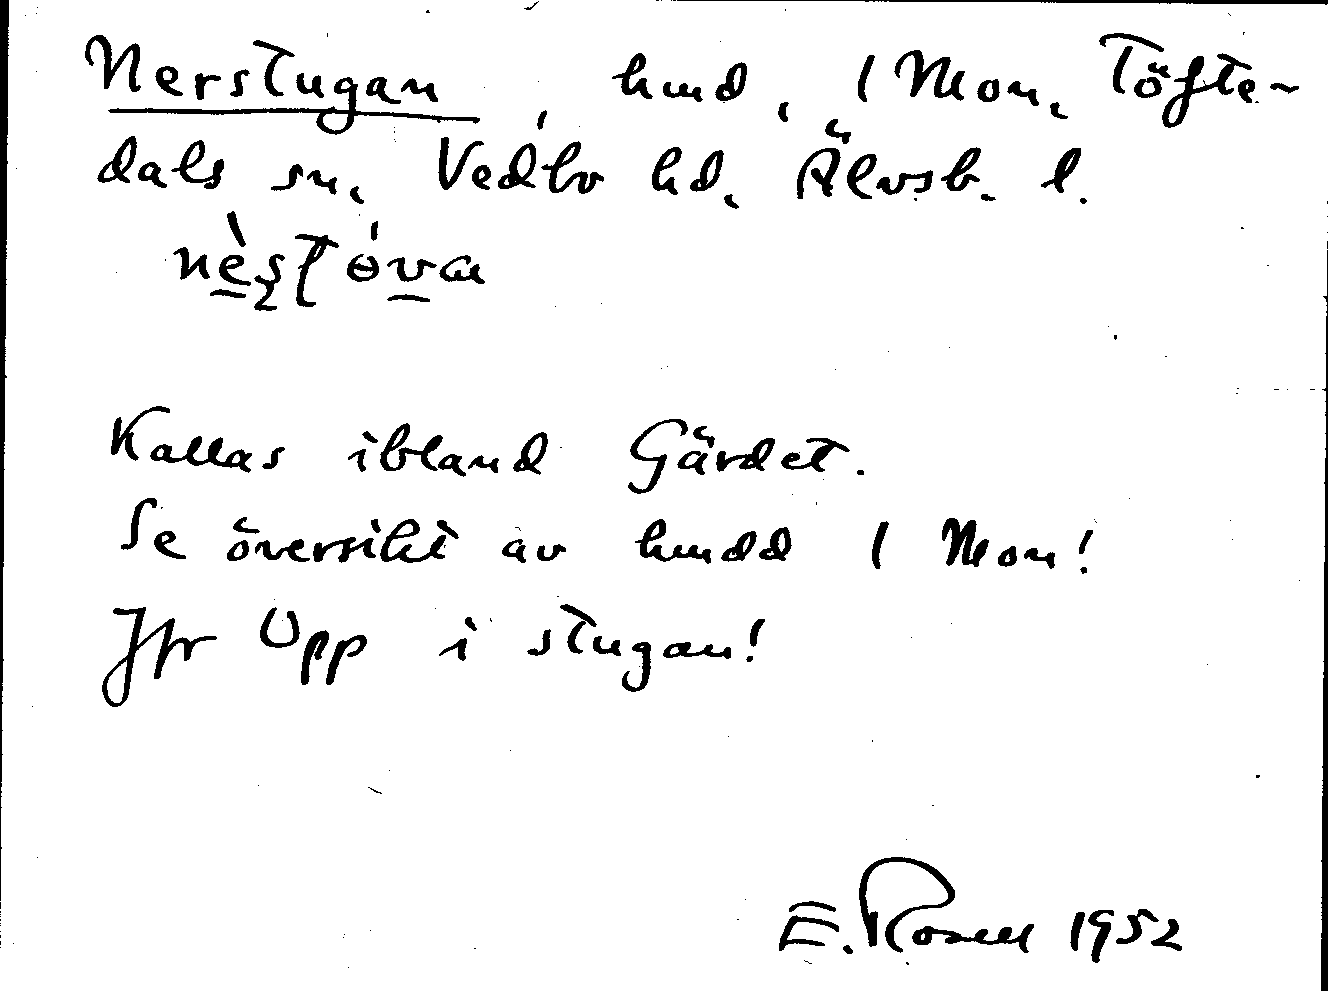 Nerstugan, hmd, 1 Mon, Töfte-
dals sn, Vedbo hd, Älvsb. l.
nèʂtóva
Kallas ibland Gärdet.
Se översikt av hmdd 1 Mon!
Jfr Upp i stugan!
E. Rosell 1952